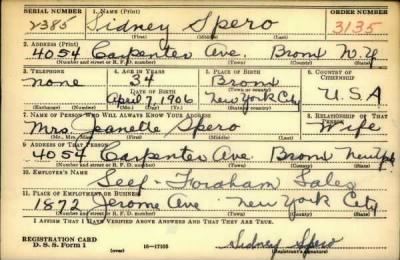 SERIAL NUMBER 1. NAME (Print) ORDER NUMBER
2385 Sidney Spero 3135
(First) (Middle) (Last)
2. ADDRESS (Print)
4054 Carpenter Ave. Bronx N.Y
(Number and street or R. F. D. number) (Town) (County) (State)
3. TELEPHONE 4. AGE IN YEARS 5. PLACE OF BIRTH 6. COUNTRY OF CITIZENSHIP
none 34 Bronx
DATE OF BIRTH (Town or county)
April 7, 1906 New York City U.S.A
(Exchange) (Number) (Mo.) (Day) (Yr.) (State or country)
7. NAME OF PERSON WHO WILL ALWAYS KNOW YOUR ADDRESS 8. RELATIONSHIP OF THAT PERSON
Mrs. Jeanette Spero Wife
(Mr., Mrs., Miss) (First) (Middle) (Last)
9. ADDRESS OF THAT PERSON
4054 Carpenter Ave Bronx New York
(Number and street or R. F. D. number) (Town) (County) (State)
10. EMPLOYER'S NAME
Fordham Sales
11. PLACE OF EMPLOYMENT OR BUSINESS
1872 Jerome Ave. New York City
(Number and street or R. F. D. number) (Town) (County) (State)
I AFFIRM THAT I HAVE VERIFIED ABOVE ANSWERS AND THAT THEY ARE TRUE.
REGISTRATION CARD
D. S. S. Form 1 (over) 16-17105 Sidney Spero